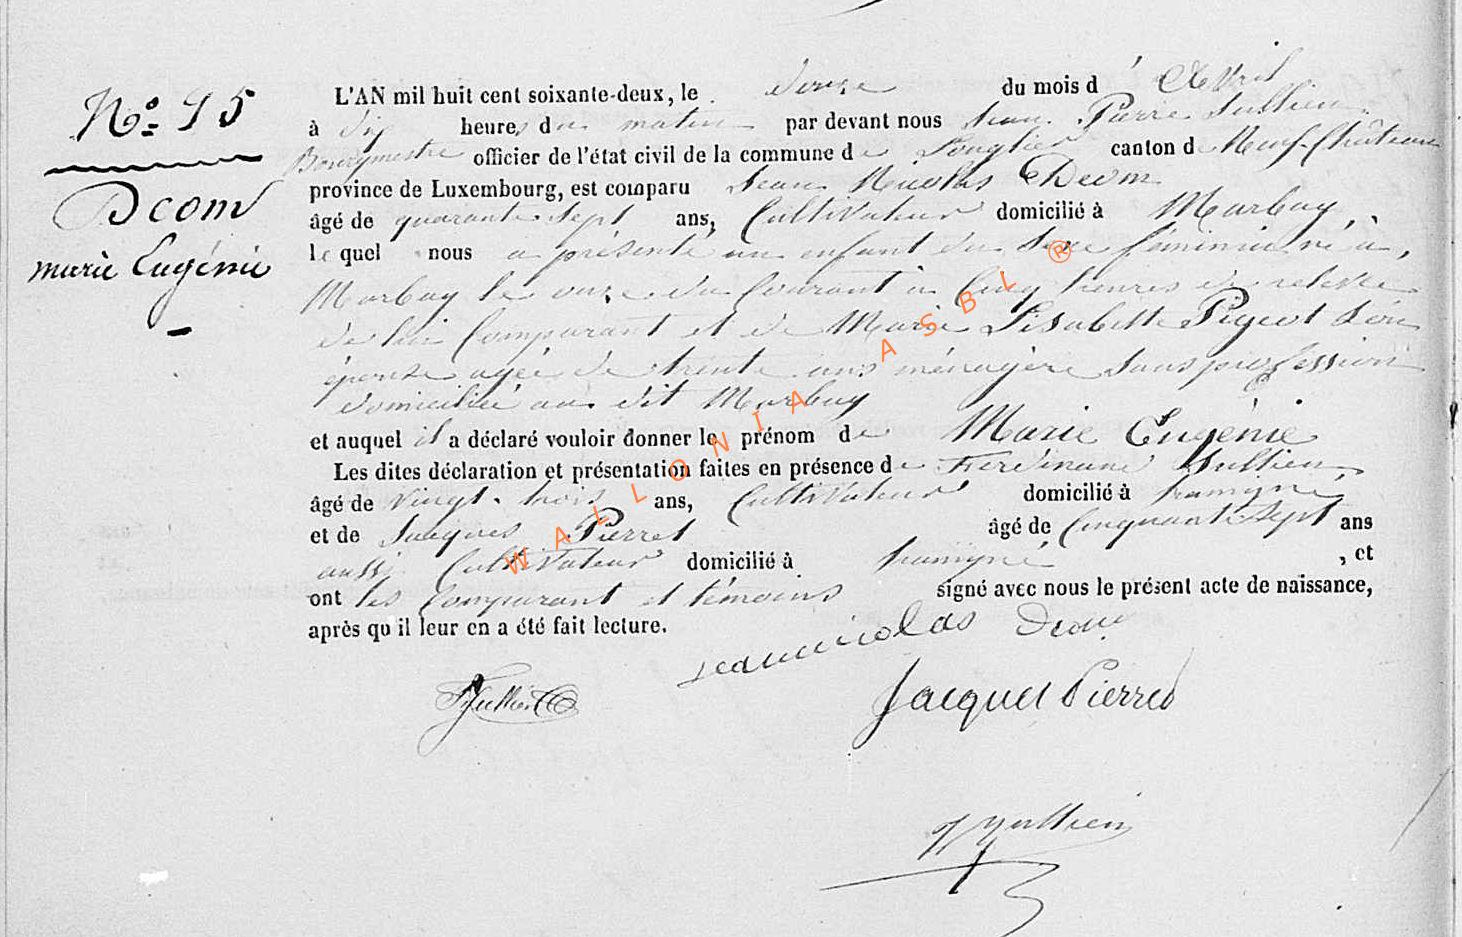 N° 15
Deom
marie Eugénie
L'AN mil huit cent soixante-deux, le douze du mois d'Avril
à dix heures du matin par devant nous Jean Pierre Jullien
Bourgmestre officier de l'état civil de la commune de Longlier canton de Neuf-Château
province de Luxembourg, est comparu Jean Nicolas Deom
âgé de quarante sept ans, Cultivateur domicilié à Marbay,
lequel nous a présenté un enfant du sexe féminin né à
Marbay le onze du Courant à Cinq heures de relevée
de lui Comparant et de Marie Lisabette Pigeot son
épouse agée de trente ans ménagère sans profession
domiciliée au dit Marbay
et auquel il a déclaré vouloir donner le prénom de Marie Eugénie
Les dites déclaration et présentation faites en présence de Ferdinand Jullien
âgé de vingt-trois ans, Cultivateur domicilié à
et de Jacques Pierret âgé de Cinquante sept ans
aussi Cultivateur domicilié à , et
ont les Comparant et témoins signé avec nous le présent acte de naissance,
après qu il leur en a été fait lecture.
jeannicolas Deom
F Jullien
Jacques Pierret
Jullien
WALLONIA ASBL ®